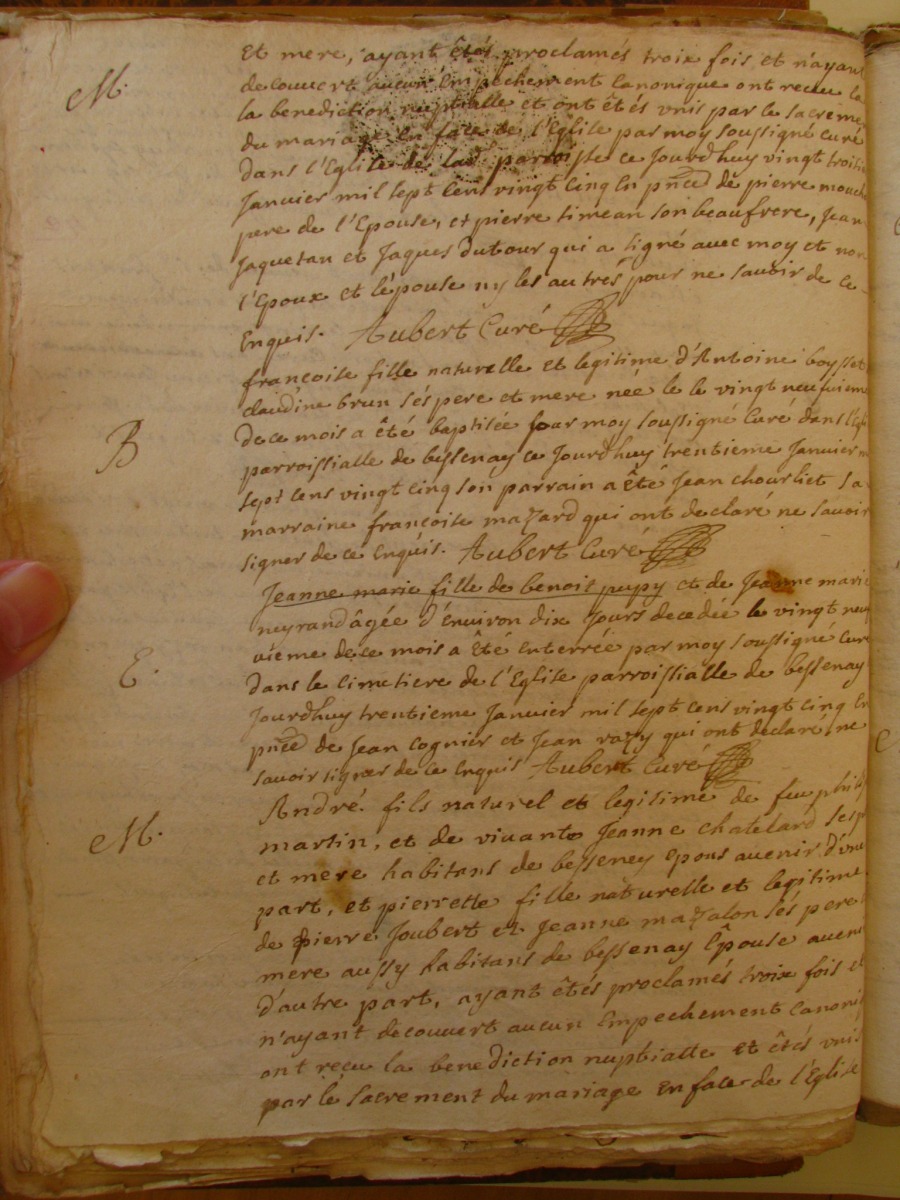 M.
Et mere, ayant êtés proclamés troix fois et n'ayant
decouvert aucun Empechement Canonique ont receu la
la benediction nuptialle et ont êtés vnis par le sacreme
du mariage En face de l'Eglise par moy soussigné Curé
dans l'Eglise de lad parroisse ce Jourdhuy vingt troisi
Janvier mil sept Cens vingt Cinq En pnce de pierre mouch
pere de l'Epouse, et pierre simean son beaufrere, Jean
Jaquetan et Jaques dutour qui a signé avec moy et non
l'Epoux et l'épouse ny les autres pour ne savoir de ce
Enquis. Aubert Curé
B
francoise fille naturelle et legitime d'Antoine boysset
claudine brun sés pere et mere née le le vingt neufuieme
de ce mois a êté baptisée par moy soussigné Curé dans l'Egli
parroissialle de bessenay ce Jourdhuy trentieme Janvier m
sept cens vingt cinq son parrain a êté Jean chourliet sa
marraine francoise mazard qui ont declaré ne savoir
signer de ce Enquis. Aubert Curé
E.
Jeanne marie fille de benoit pupy et de Jeanne marie
neyrand âgée d'Environ dix Jours decedée le vingt neuf
vieme de ce mois a êté Enterrée par moy soussigné Curé
dans le Cimetiere de l'Eglise parroissialle de bessenay
Jourdhuy trentieme Janvier mil sept cens vingt cinq En
pnce de Jean Cognier et Jean razy qui ont declaré ne
savoir signer de ce Enquis Aubert Curé
M.
André fils naturel et legitime de feu phili
martin, et de vivante Jeanne chatelard ses p
et mere habitans de besseney epous avenir d'vne
part, et pierrette fille naturelle et legitime
de pierre Joubert et Jeanne mazalon sés pere
mere aussy habitans de bessenay Epouse aveni
d'autre part, ayant êtés proclamés troix fois et
n'ayant decouvert aucun Empechement Canoni
ont reçu la benediction nuptialle et êtés vnis
par le sacrement du mariage En face de l'Eglise